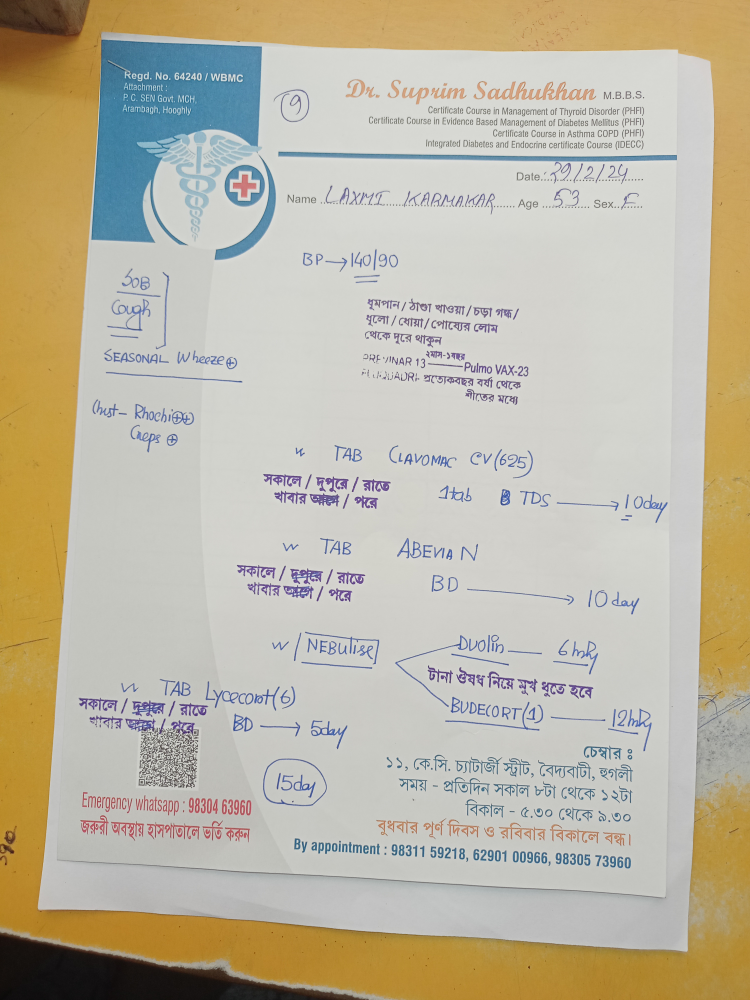 Regd. No. 64240 / WBMC
Attachment :
P. C. SEN Govt. MCH,
Arambagh, Hooghly
9
Dr. Suprim Sadhukhan M.B.B.S.
Certificate Course in Management of Thyroid Disorder (PHFI)
Certificate Course in Evidence Based Management of Diabetes Mellitus (PHFI)
Certificate Course in Asthma COPD (PHFI)
Integrated Diabetes and Endocrine certificate Course (IDECC)
Date: 29/2/24
Name LAXMI KARMAKAR Age 53 Sex F
BP → 140/90
SOB
Cough
SEASONAL Wheeze ⊕
Chest - Rhochi ⊕⊕
Creps ⊕
ধূমপান / ঠাণ্ডা খাওয়া / চড়া গন্ধ /
ধূলো / ধোয়া / পোষ্যের লোম
থেকে দূরে থাকুন
২মাস-১বছর
PREVINAR 13 Pulmo VAX-23
প্রত্যেকবছর বর্ষা থেকে
শীতের মধ্যে
TAB CLAVOMAC CV (625)
সকালে / দুপুরে / রাতে
খাবার আগে / পরে
1tab TDS → 10day
TAB ABEVIA N
সকালে / দুপুরে / রাতে
খাবার আগে / পরে
BD → 10 day
NEBULISE
DUOlin 6hrly
টানা ঔষধ নিয়ে মুখ ধুতে হবে
BUDECORT (1) 12hrly
TAB Lycecort (6)
সকালে / দুপুরে / রাতে
খাবার আগে / পরে
BD → 5day
15day
Emergency whatsapp : 98304 63960
জরুরী অবস্থায় হাসপাতালে ভর্তি করুন
চেম্বার :
১১, কে.সি. চ্যাটার্জী স্ট্রীট, বৈদ্যবাটী, হুগলী
সময় - প্রতিদিন সকাল ৮টা থেকে ১২টা
বিকাল - ৫.৩০ থেকে ৯.৩০
বুধবার পূর্ণ দিবস ও রবিবার বিকালে বন্ধ।
By appointment : 98311 59218, 62901 00966, 98305 73960